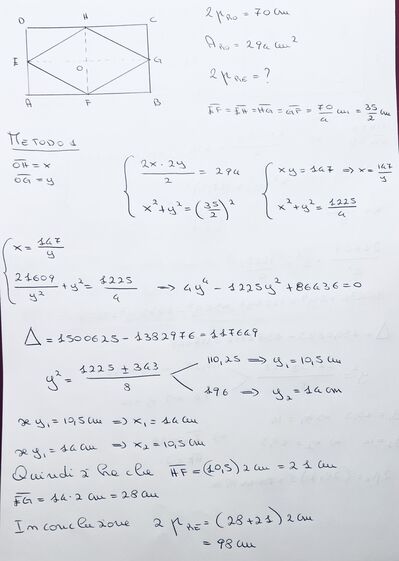 D H C
E O G
A F B
2p RO = 70 cm
A RO = 294 cm²
2p RE = ?
EF = EH = HG = GF = 70/4 cm = 35/2 cm
METODO 1
OH = x
OG = y
{ 2x · 2y / 2 = 294
x² + y² = (35/2)²
{ xy = 147 ⇒ x = 147/y
x² + y² = 1225/4
{ x = 147/y
21609/y² + y² = 1225/4 ⇒ 4y⁴ - 1225y² + 86436 = 0
Δ = 1500625 - 1382976 = 117649
y² = (1225 ± 343)/8
110,25 ⇒ y₁ = 10,5 cm
196 ⇒ y₂ = 14 cm
se y₁ = 10,5 cm ⇒ x₁ = 14 cm
se y₁ = 14 cm ⇒ x₂ = 10,5 cm
Quindi si ha che HF = (10,5) 2 cm = 21 cm
EG = 14 · 2 cm = 28 cm
In conclusione 2p RE = (28 + 21) 2 cm
= 98 cm